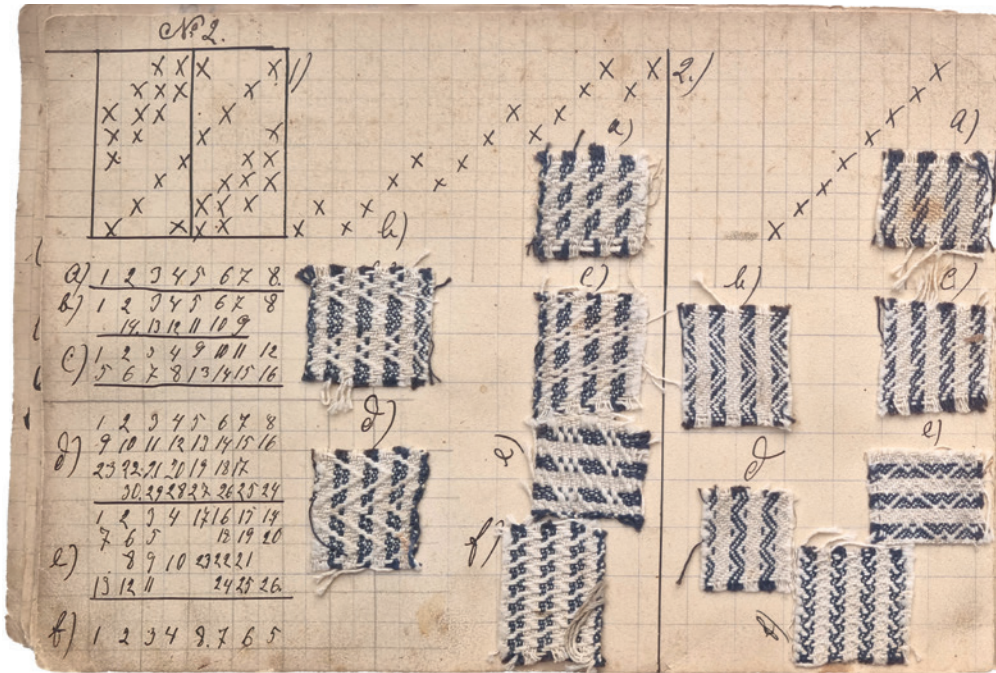 № 2.
1)
2.)
a)
a)
b)
c)
b)
c)
a) 1 2 3 4 5 6 7 8.
b) 1 2 3 4 5 6 7 8
14. 13 12 11 10 9
c) 1 2 3 4 9 10 11 12
5 6 7 8 13 14 15 16
d) 1 2 3 4 5 6 7 8
9 10 11 12 13 14 15 16
23 22 21 20 19 18 17
30. 29 28 27 26 25 24
e) 1 2 3 4 17 16 15 14
7 6 5 18 19 20
8 9 10 23 22 21
13 12 11 24 25 26.
f) 1 2 3 4 8. 7 6 5
d)
e)
f)
d
e)
f)